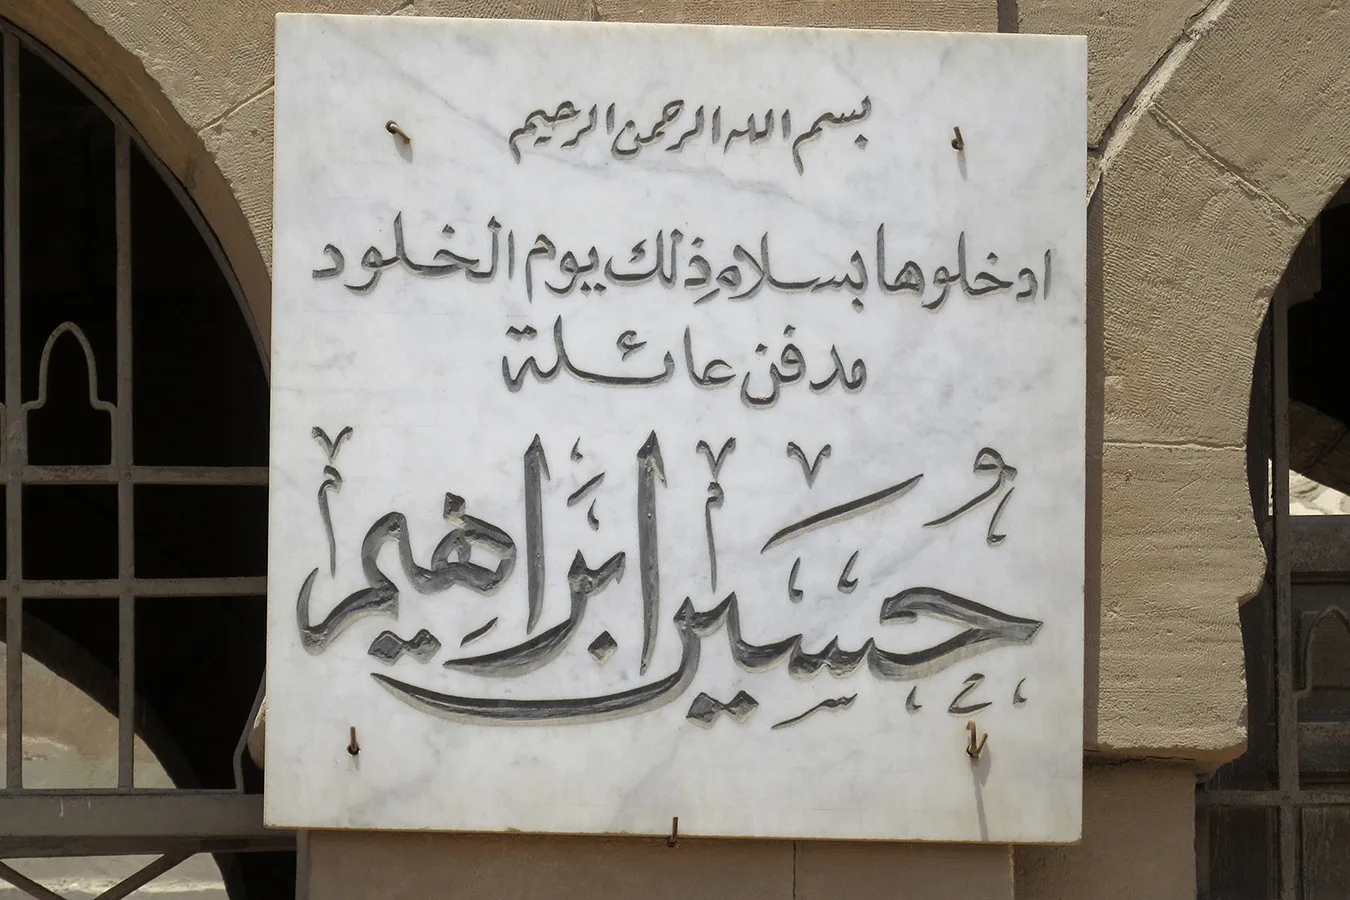 بسم الله الرحمن الرحيم
ادخلوها بسلام ذِلك يوم الخلود
مدفن عائلة
حُسين ابراهيم